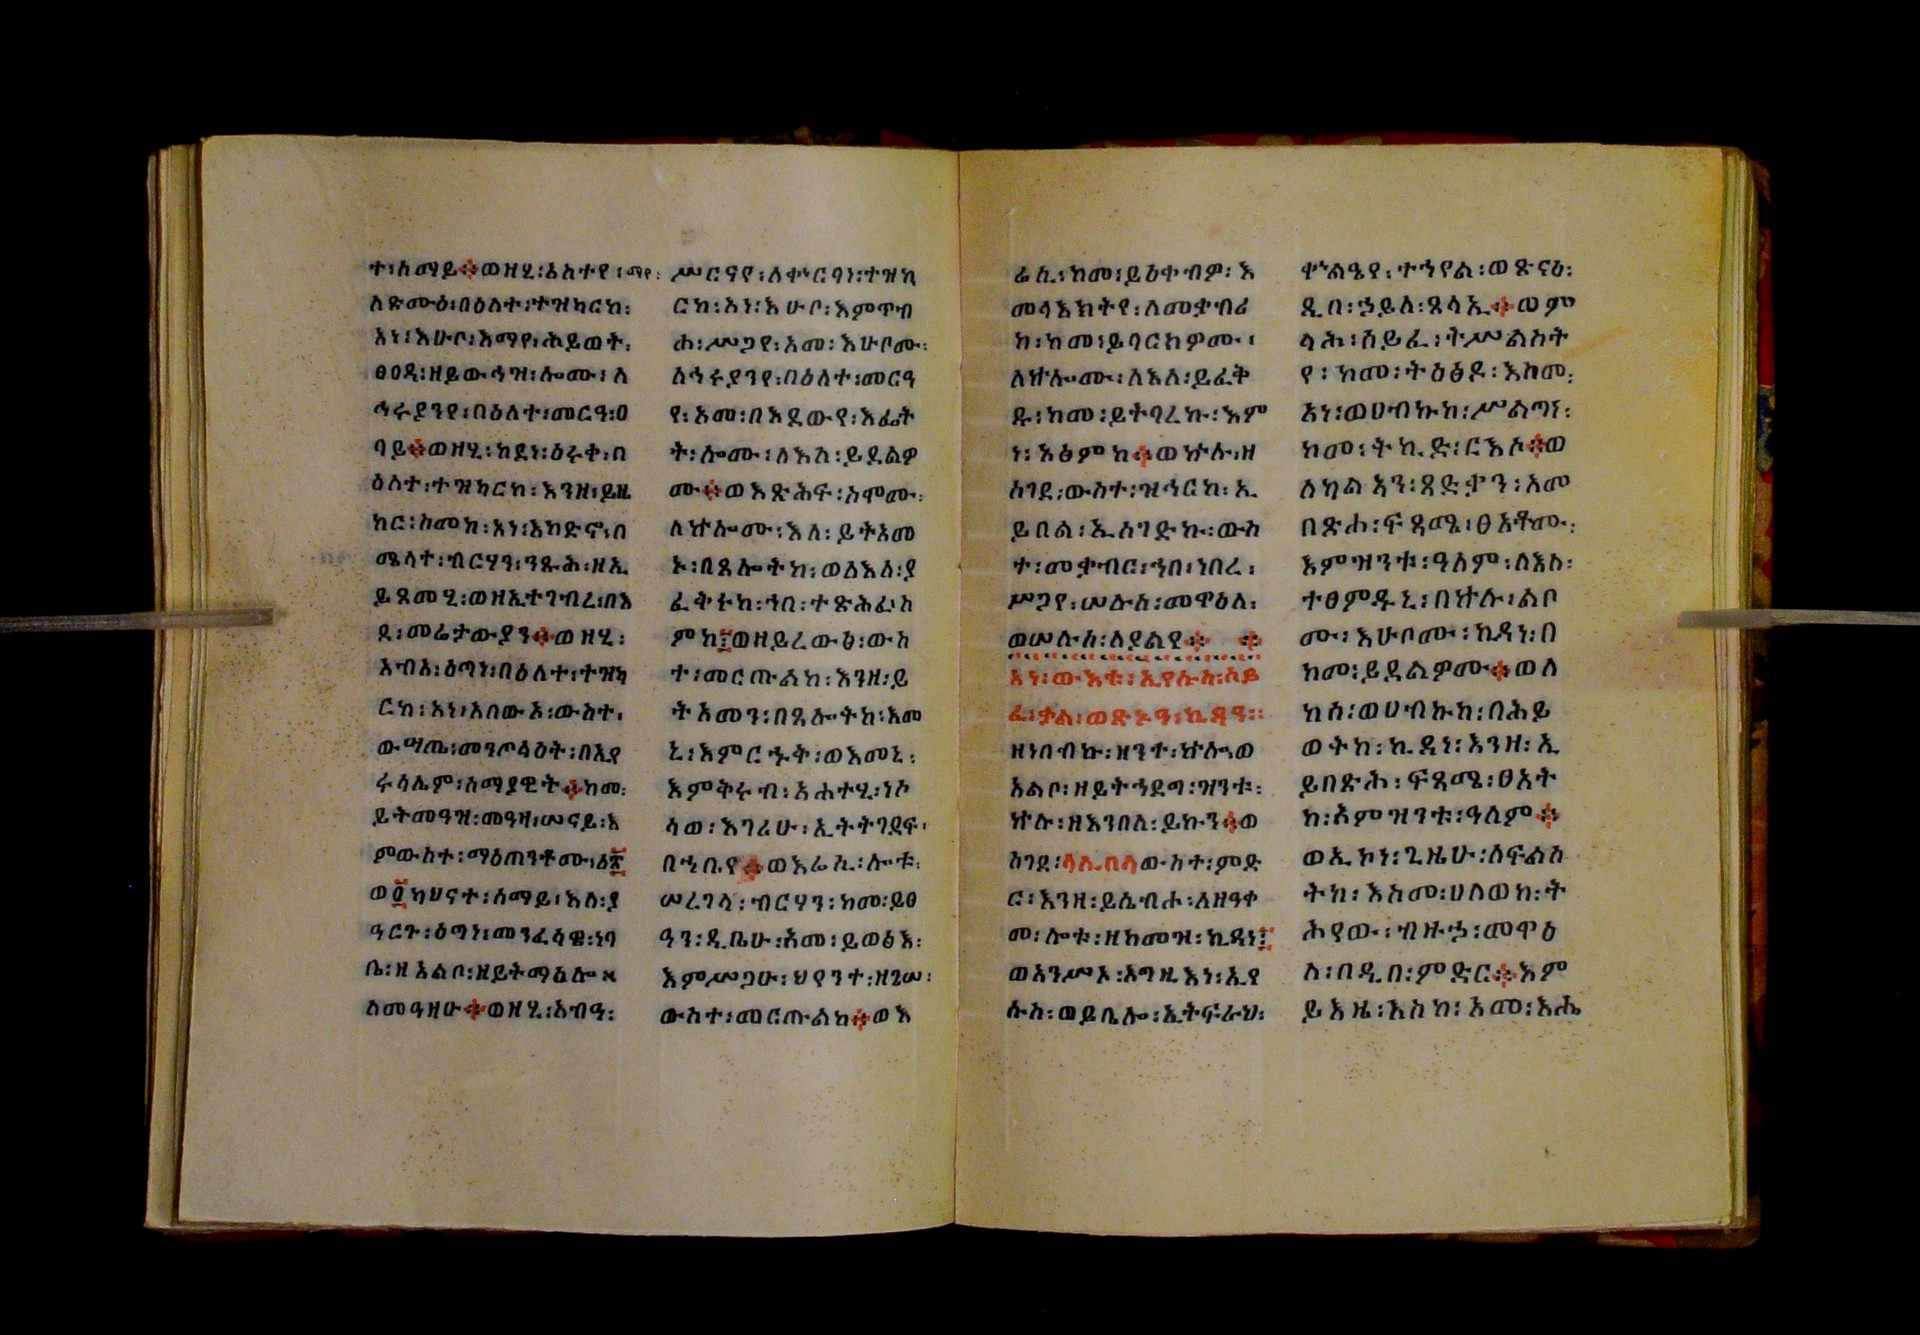 ተ፡ሰማይ፨ወዘሂ፡አስተየ፡ማየ፡
ለጽሙዕ፡በዕለተ፡ተዝካርከ፡
አነ፡እሁቦ፡እማየ፡ሕይወት፡
ፀዐዲ፡ዘይውኅዝ፡ሎሙ፡ለ
ኅሩያንየ፡በዕለተ፡መርዓ፡ዐ
ባይ፨ወዘሂ፡ከደነ፡ዕሩቀ፡በ
ዕለተ፡ተዝካርከ፡እንዘ፡ይዜ
ከር፡ስመከ፡አነ፡እከድኖ፡በ
ሜላተ፡ብርሃን፡ንጹሕ፡ዘኢ
ይጸመሂ፡ወዘኢተገብረ፡በእ
ደ፡መሬታውያን፨ወዘሂ፡
አብአ፡ዕጣነ፡በዕለተ፡ተዝካ
ርከ፡አነ፡አበውኦ፡ውስተ፡
ውሣጤ፡መንጦላዕት፡በኢየ
ሩሳሌም፡ሰማያዊት፨ከመ፡
ይትመዓዝ፡መዓዛ፡ሠናይ፡እ
ምውስተ፡ማዕጠንቶሙ፡ዕ፳
ወ፬ካህናተ፡ሰማይ፡እለ፡ያ
ዓርጉ፡ዕጣነ፡መንፈሳዌ፡ነባ
ቤ፡ዘአልቦ፡ዘይትማሰሎ፡
ለመዓዘሁ፨ወዘሂ፡አብዓ፡
ሥርናየ፡ለቀኍርባነ፡ተዝካ
ርከ፡አነ፡እሁቦ፡እምጥብ
ሐ፡ሥጋየ፡አመ፡እሁቦሙ፡
ለኅሩያንየ፡በዕለተ፡መርዓ
የ፡አመ፡በእደውየ፡እፌት
ት፡ሎሙ፡ለእለ፡ይደልዎ
ሙ፨ወእጽሕፍ፡አሞሙ፡
ለኵሎሙ፡እለ፡ይትአመ
ኑ፡በጸሎትከ፡ወለእለ፡ያ
ፈቅሩከ፡ኀበ፡ተጽሕፈ፡ስ
ምከ፤ወዘይረውፅ፡ውስ
ተ፡መርጡልከ፡እንዘ፡ይ
ትአመን፡በጸሎትከ፡እመ
ኒ፡እምርኁቅ፡ወእመኒ፡
እምቅሩብ፡አሐተሂ፡ነኮ
ሳወ፡እገሪሁ፡ኢትትገደፍ፡
በኀቤየ፨ወእሬሲ፡ሎቱ፡
ሠረገላ፡ብርሃን፡ከመ፡ይፀ
ዓን፡ዲቤሁ፡አመ፡ይወፅእ፡
እምሥጋሁ፡ህየንተ፡ዘጌሠ፡
ውስተ፡መርጡልከ፨ወእ
ሬሲ፡ከመ፡ይዕቀብዎ፡እ
መላእክትየ፡ለመቃብሪ
ከ፡ከመ፡ይባርከዎሙ፡
ለኵሎሙ፡ለእለ፡ይፈቅ
ዱ፡ከመ፡ይትባረኩ፡እም
ነ፡አፅምከ፨ወኵሉ፡ዘ
ሰገደ፡ውስተ፡ዝኅርከ፡ኢ
ይበል፡ኢሰገድኩ፡ውስ
ተ፡መቃብር፡ኀበ፡ነበረ፡
ሥጋየ፡ሠሉስ፡መዋዕለ፡
ወሠሉስ፡ለያልየ፨ ፨
አነ፡ውእቱ፡ኢየሱስ፡ሰይ
ፈ፡ቃል፡ወጽኑዓ፡ኪዳን፡፡
ዘነበብኩ፡ዘንተ፡ኵሎ፡ወ
አልቦ፡ዘይትኀደግ፡ዝንቱ፡
ኵሉ፡ዘእንበለ፡ይኩን፨ወ
ሰገደ፡ላሊበላውስተ፡ምድ
ር፡እንዘ፡ይሴብሖ፡ለዘዓቀ
መ፡ሎቱ፡ዘከመዝ፡ኪዳነ፤
ወአንሥኦ፡እግዚእነ፡ኢየ
ሱስ፡ወይቤሎ፡ኢትፍራህ፡
ቀኍልዔየ፡ተኀየል፡ወጽናዕ፡
ዲበ፡ኃይለ፡ጸላኢ፨ወም
ላሕ፡ሰይፈ፡ትሥልስት
የ፡ከመ፡ትዕፅዶ፡እስመ፡
አነ፡ወሀብኩከ፡ሥልጣነ፡
ከመ፡ትኪድ፡ርእሶ፨ወ
ሰካልኣን፡ጻድቃን፡አመ
በጽሐ፡ፍጻሜ፡ፀአቶሙ፡
እምዝንቱ፡ዓለም፡ለእለ፡
ተፀምዱኒ፡በኵሉ፡ልቦ
ሙ፡እሁቦሙ፡ኪዳነ፡በ
ከመ፡ይደልዎሙ፨ወለ
ከሰ፡ወሀብኩከ፡በሕይ
ወትከ፡ኪዳነ፡እንዘ፡ኢ
ይበጽሕ፡ፍጻሜ፡ፀአት
ከ፡እምዝንቱ፡ዓለም፨
ወኢኮነ፡ጊዜሁ፡ለፍልስ
ትከ፡እስመ፡ሀለወከ፡ት
ሕየው፡ብዙኃ፡መዋዕ
ለ፡በዲበ፡ምድር፨እም
ይእዜ፡እስከ፡አመ፡እሔ